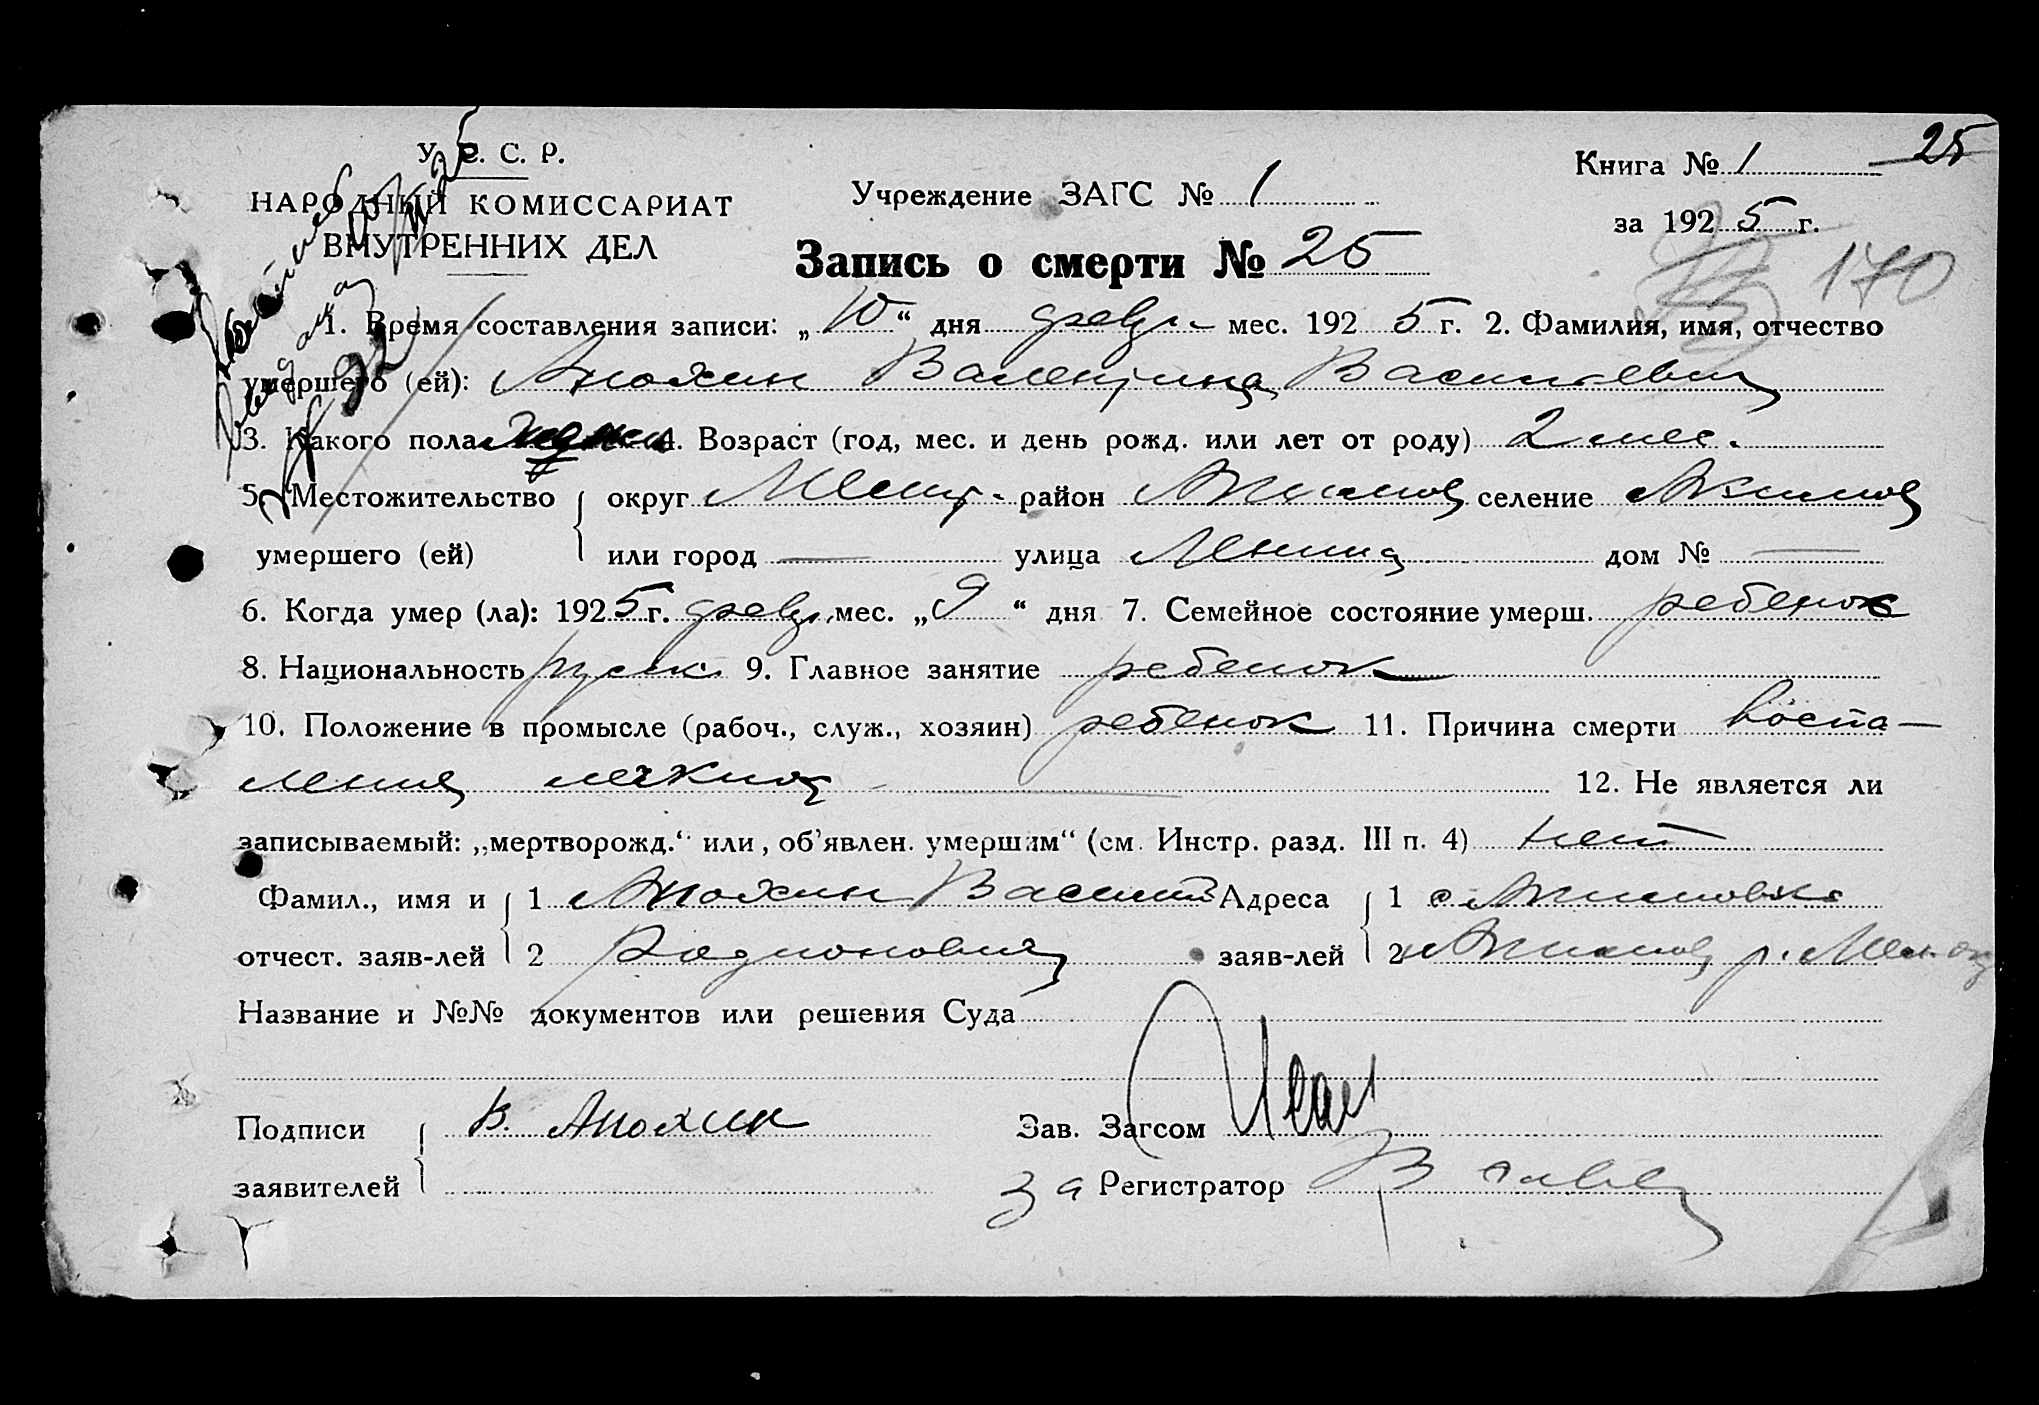 У. С. С. Р.
НАРОДНЫЙ КОМИССАРИАТ
ВНУТРЕННИХ ДЕЛ
Учреждение ЗАГС № 1
Книга № 1 25
за 1925 г.
Запись о смерти № 25
170
1. Время составления записи: „10“ дня февр. мес. 1925 г. 2. Фамилия, имя, отчество
умершего (ей): Анохин Валентина Васильевич
3. Какого пола 4. Возраст (год, мес. и день рожд. или лет от роду) 2 мес.
5. Местожительство округ район селение
умершего (ей) или город — улица Ленина дом № —
6. Когда умер (ла): 1925 г. февр. мес. „9“ дня 7. Семейное состояние умерш. ребенок
8. Национальность русск. 9. Главное занятие ребенок
10. Положение в промысле (рабоч., служ., хозяин) ребенок 11. Причина смерти Воспа-
ления легких 12. Не является ли
записываемый: „мертворожд.“ или, об'явлен. умершим“ (см. Инстр. разд. III п. 4) нет
Фамил., имя и 1 Анохин Василий Адреса 1 с. Акимовка
отчест. заяв-лей 2 Родионович заяв-лей 2 Акимов р. Мел. ок
Название и №№ документов или решения Суда
Подписи В. Анохин Зав. Загсом
заявителей За Регистратор